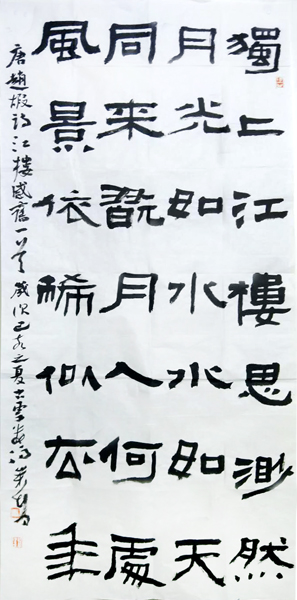 獨上江樓思渺然
月光如水水如天
同来翫月人何處
風景依稀似去年
唐趙嘏詩江樓感舊一首歲次己亥之夏